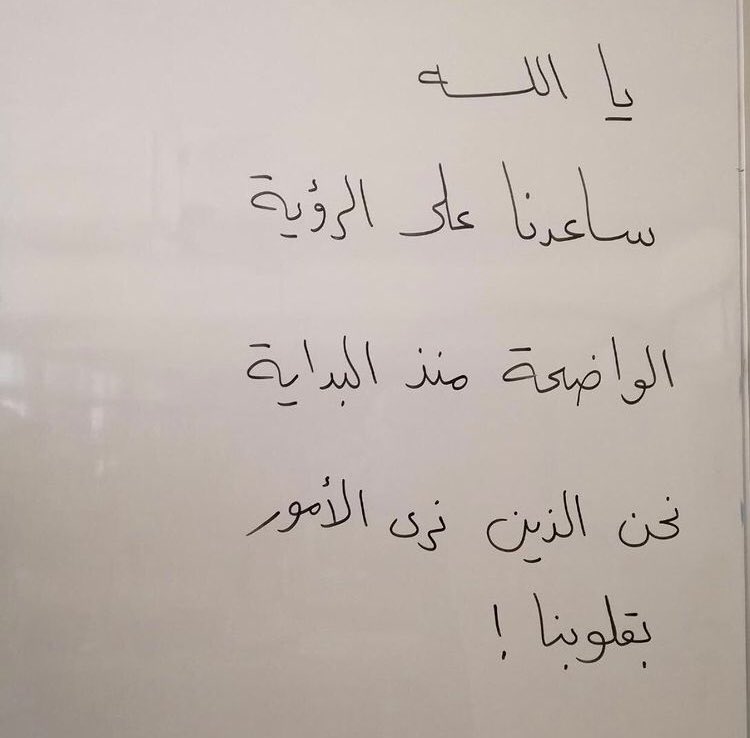 يا الله
ساعدنا على الرؤية
الواضحة منذ البداية
نحن الذين نرى الأمور
بقلوبنا !